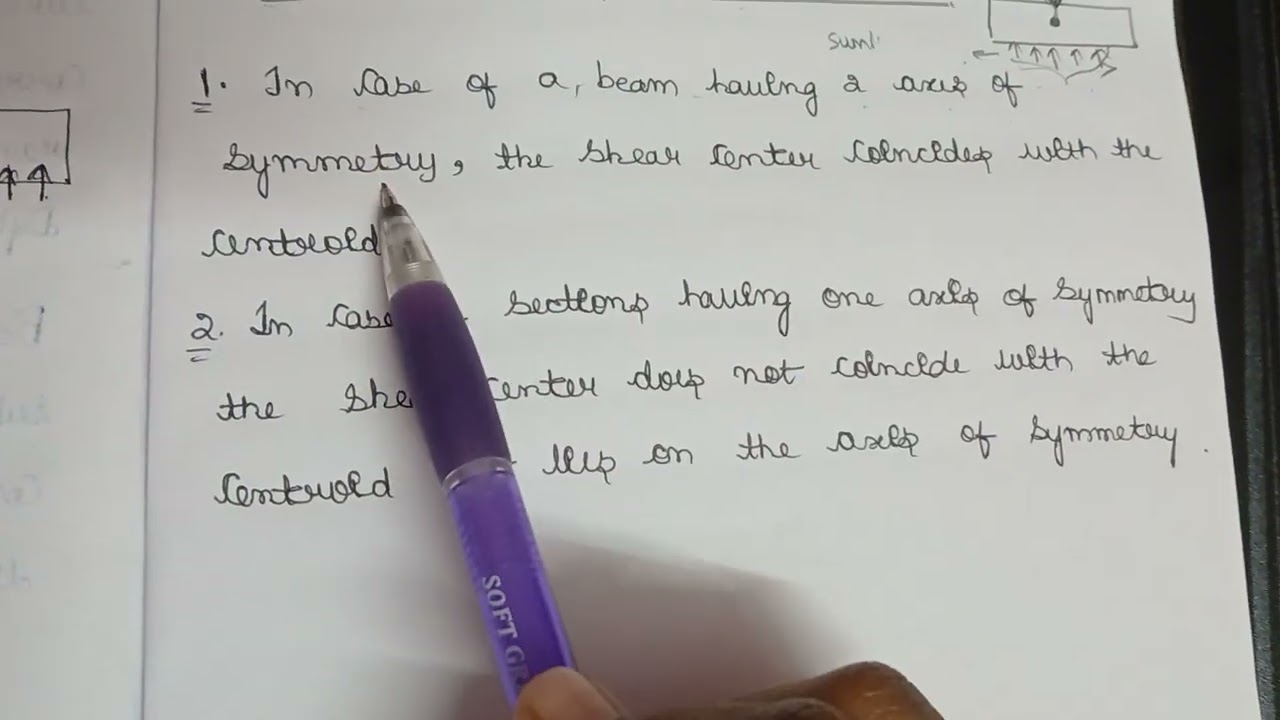 1. In case of a, beam having 2 axis of
symmetry, the shear center coincides with the
centroid
2. In case sections having one axis of symmetry
the center does not coincide with the
centroid lies on the axis of symmetry.
SOFT